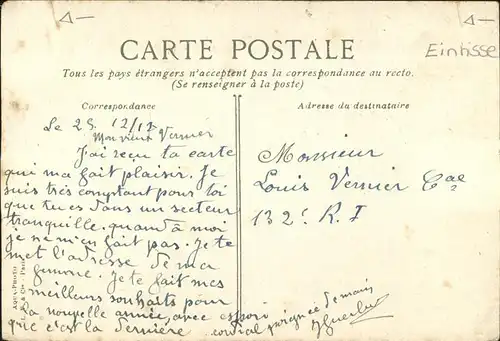 CARTE POSTALE
Eintisse
Tous les pays étrangers n'acceptent pas la correspondance au recto.
(Se renseigner à la poste)
Correspondance
Adresse du destinataire
Le 25 12/17
Mon vieux Vernier
J'ai reçu ta carte
qui ma fait plaisir. Je
suis très comptant pour toi
que tu es dans un secteur
tranquille. quand à moi
je ne m'en fait pas. Je te
met l'adresse de ma
Je te fait mes
meilleurs souhaits pour
la nouvelle année, avec espoir
que c'est la dernière
cordial poignée de main
Monsieur
Louis Vernier Cal
132e R. I